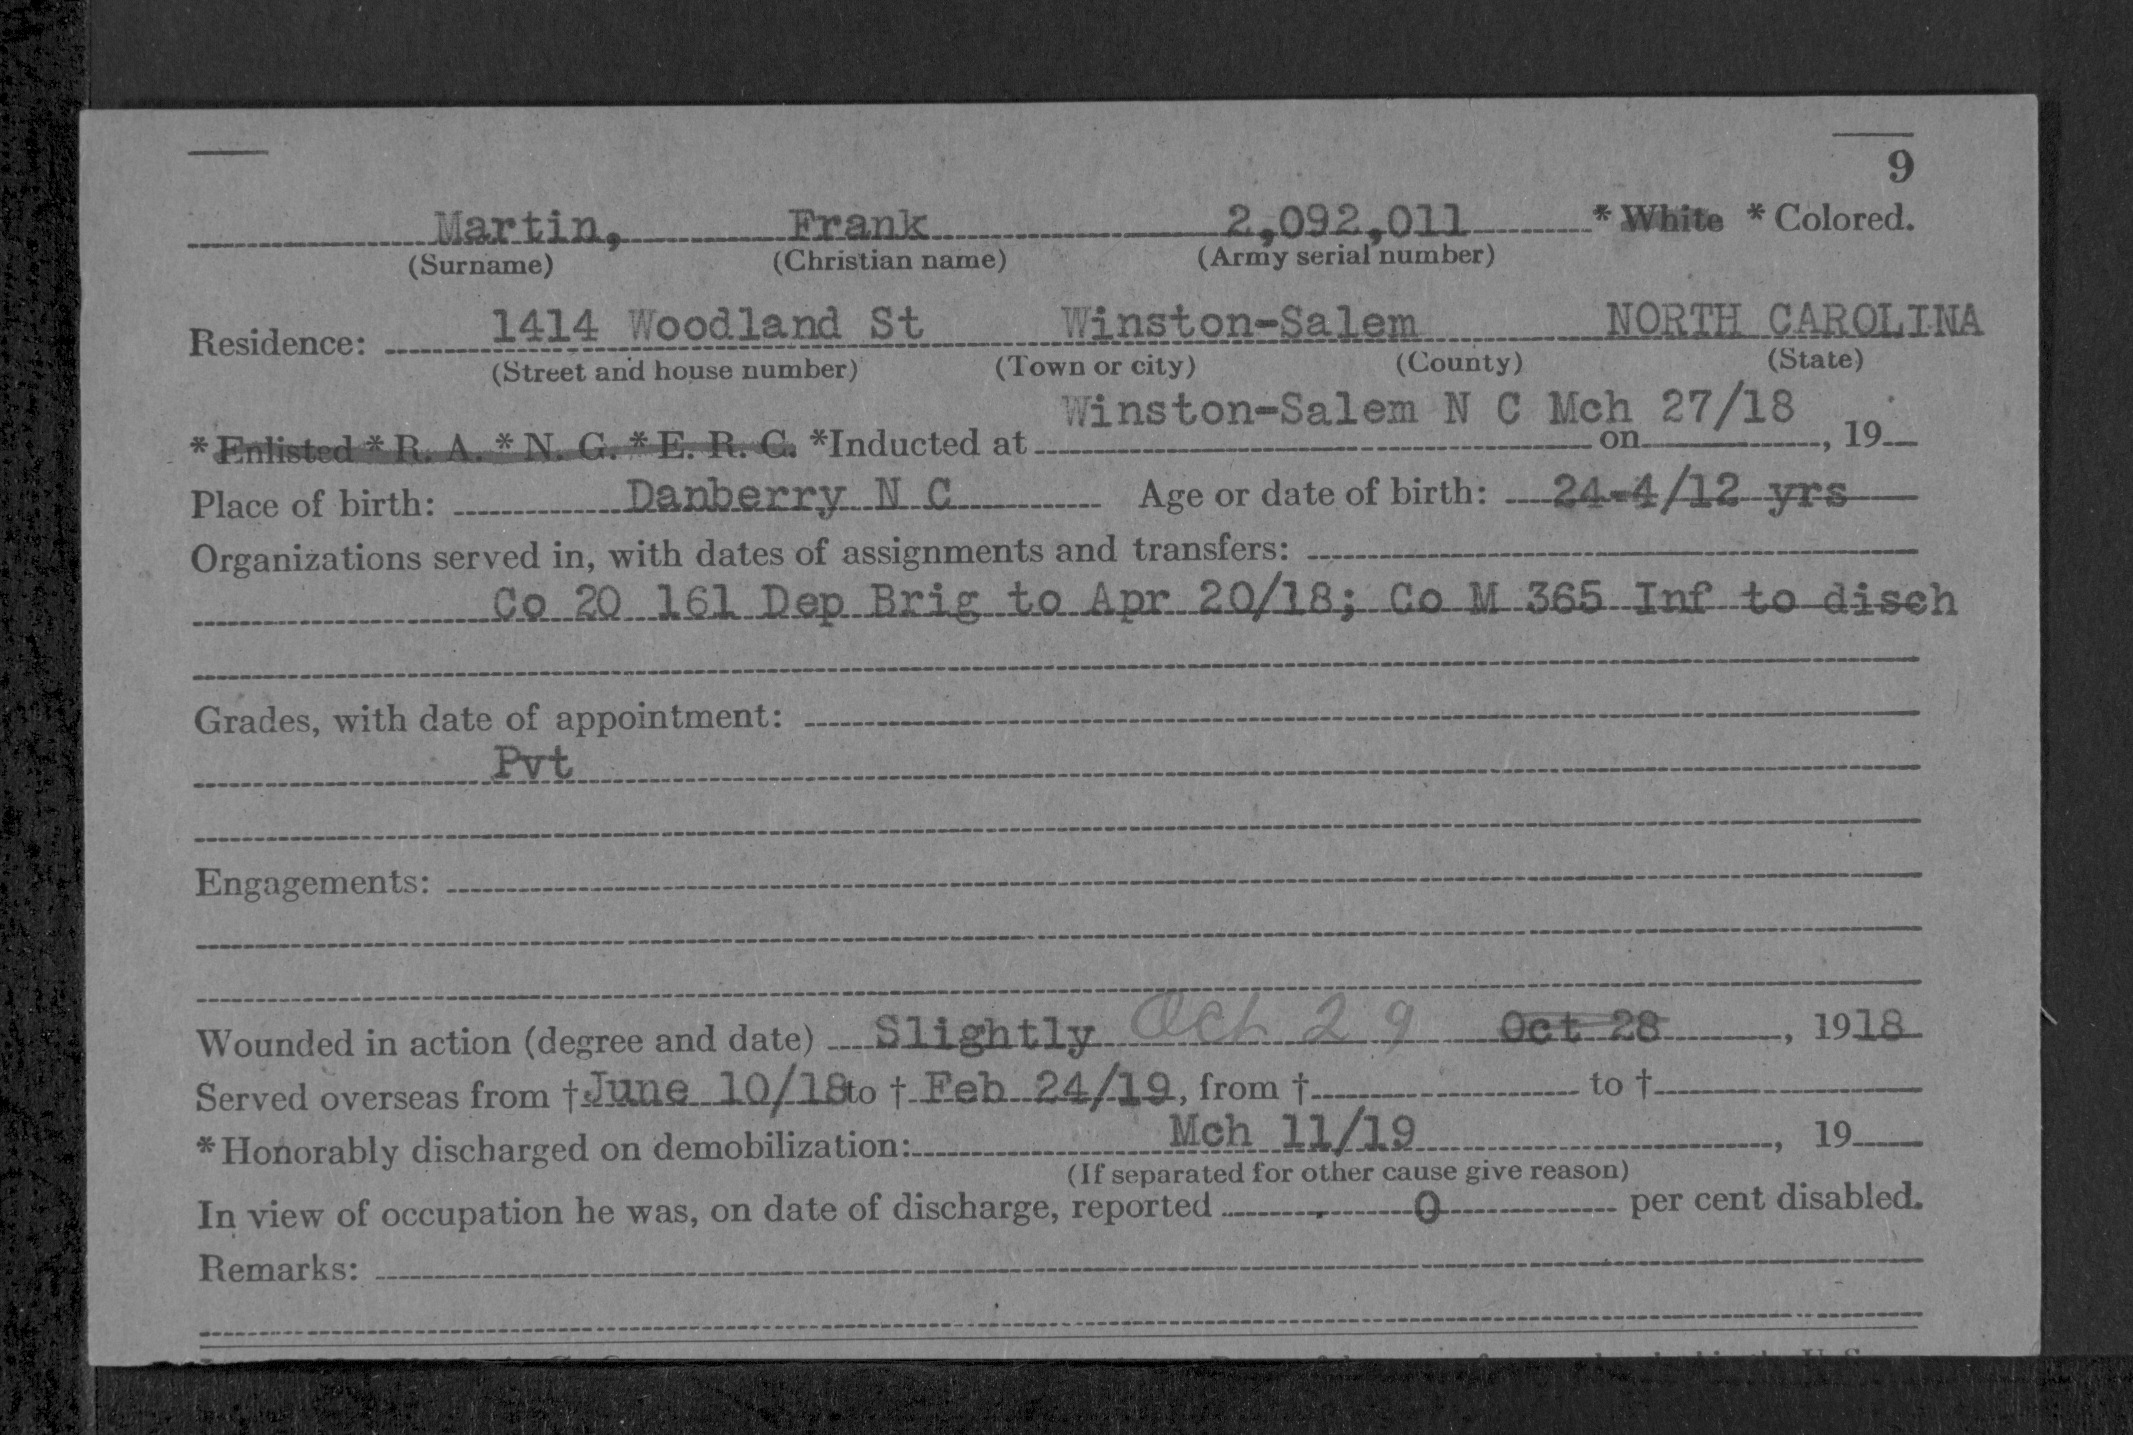 9
Martin, Frank 2,092,011 * White * Colored.
(Surname) (Christian name) (Army serial number)
Residence: 1414 Woodland St Winston-Salem NORTH CAROLINA
(Street and house number) (Town or city) (County) (State)
Winston-Salem N C Mch 27/18
* Enlisted * R. A. * N. G. * E. R. C. *Inducted at on , 19
Place of birth: Danberry N C Age or date of birth: 24-4/12 yrs
Organizations served in, with dates of assignments and transfers:
Co 20 161 Dep Brig to Apr 20/18; Co M 365 Inf to disch
Grades, with date of appointment:
Pvt
Engagements:
Wounded in action (degree and date) Slightly Oct 29 Oct 28, 1918
Served overseas from † June 10/18 to † Feb 24/19, from † to †
* Honorably discharged on demobilization: Mch 11/19, 19
(If separated for other cause give reason)
In view of occupation he was, on date of discharge, reported 0 per cent disabled.
Remarks: